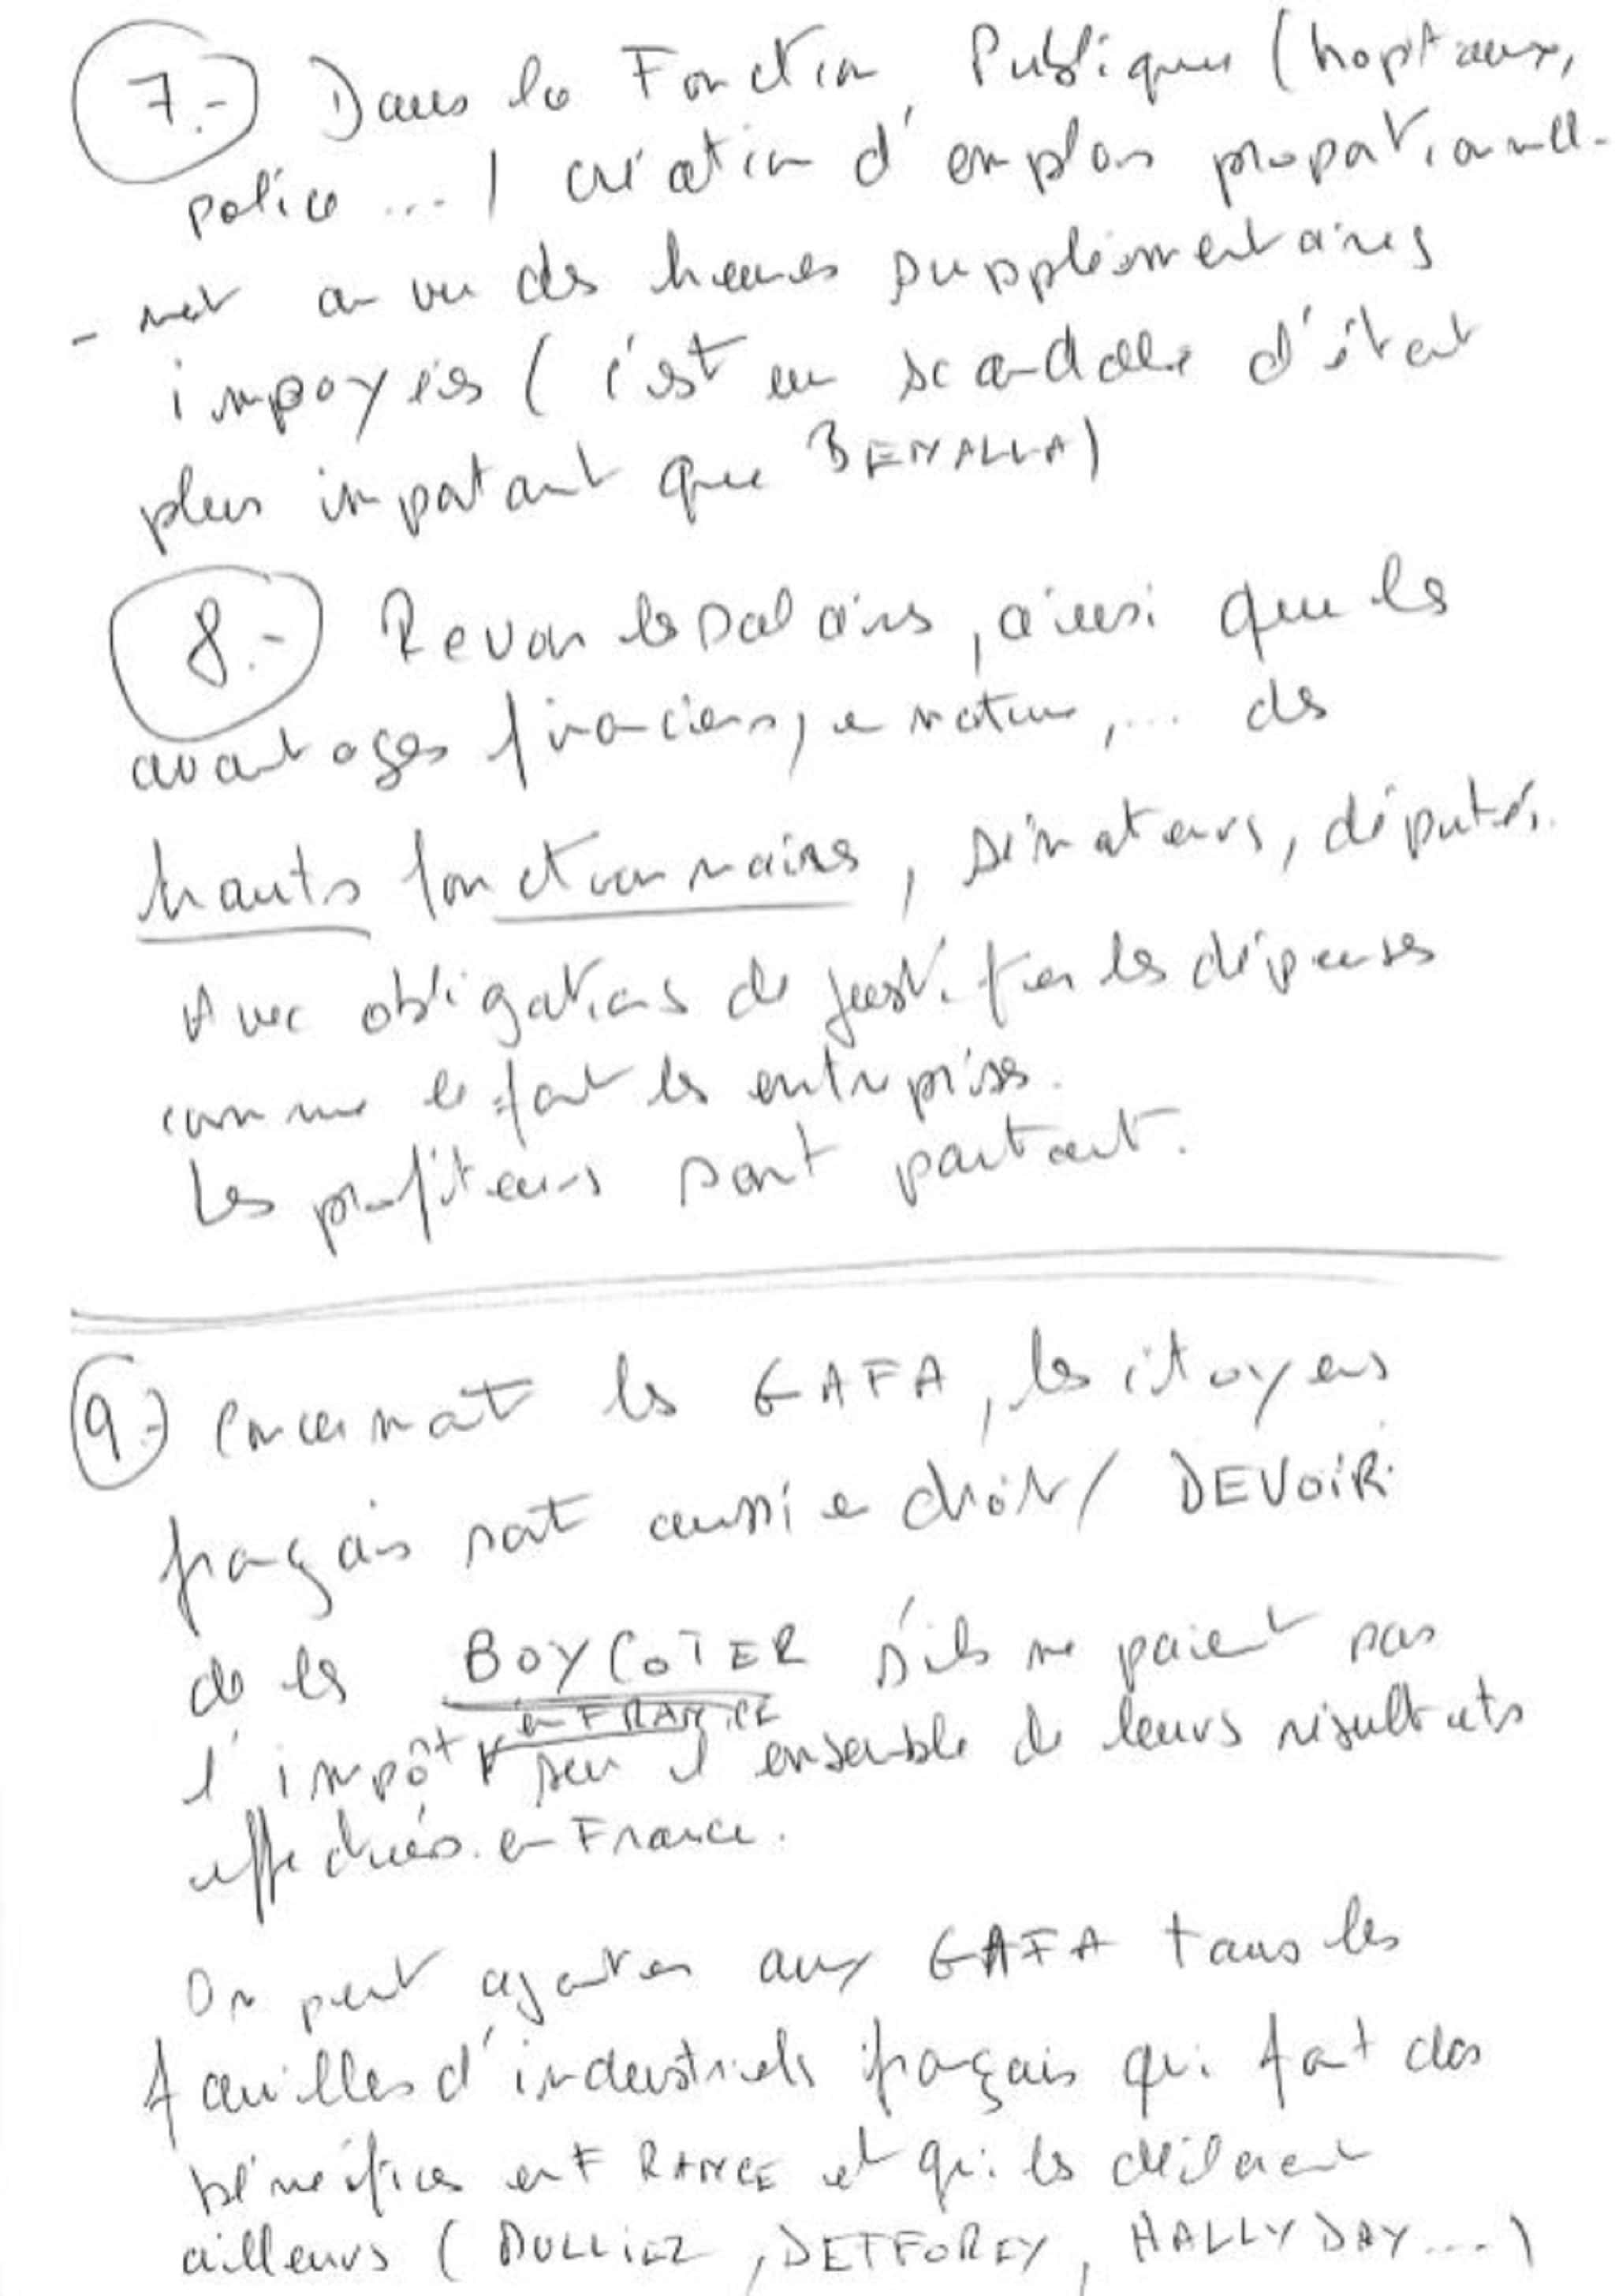 7.- Dans la Fonction Publique (hopitaux,
police ...) création d'emplois proportionnelle-
-ment au vu des heures supplémentaires
impayées (c'est un scandale d'état
plus important que BENALLA)
8.- Revoir les salaires, ainsi que les
avantages financiers, en nature, ... des
hauts fonctionnaires, sénateurs, députés.
Avec obligations de justifier les dépenses
comme le font les entreprises.
Les profiteurs sont partout.
9.- Concernant les GAFA, les citoyens
français sont aussi en droit / DEVOIR
de les BOYCOTER s'ils ne paient pas
en FRANCE
l'impôt sur l'ensemble de leurs résultats
effectués en France.
On peut ajouter aux GAFA tous les
familles d'industriels français qui font des
bénéfices en FRANCE et qui les déclarent
ailleurs (MULLIEZ, DEFFOREY, HALLYDAY...)